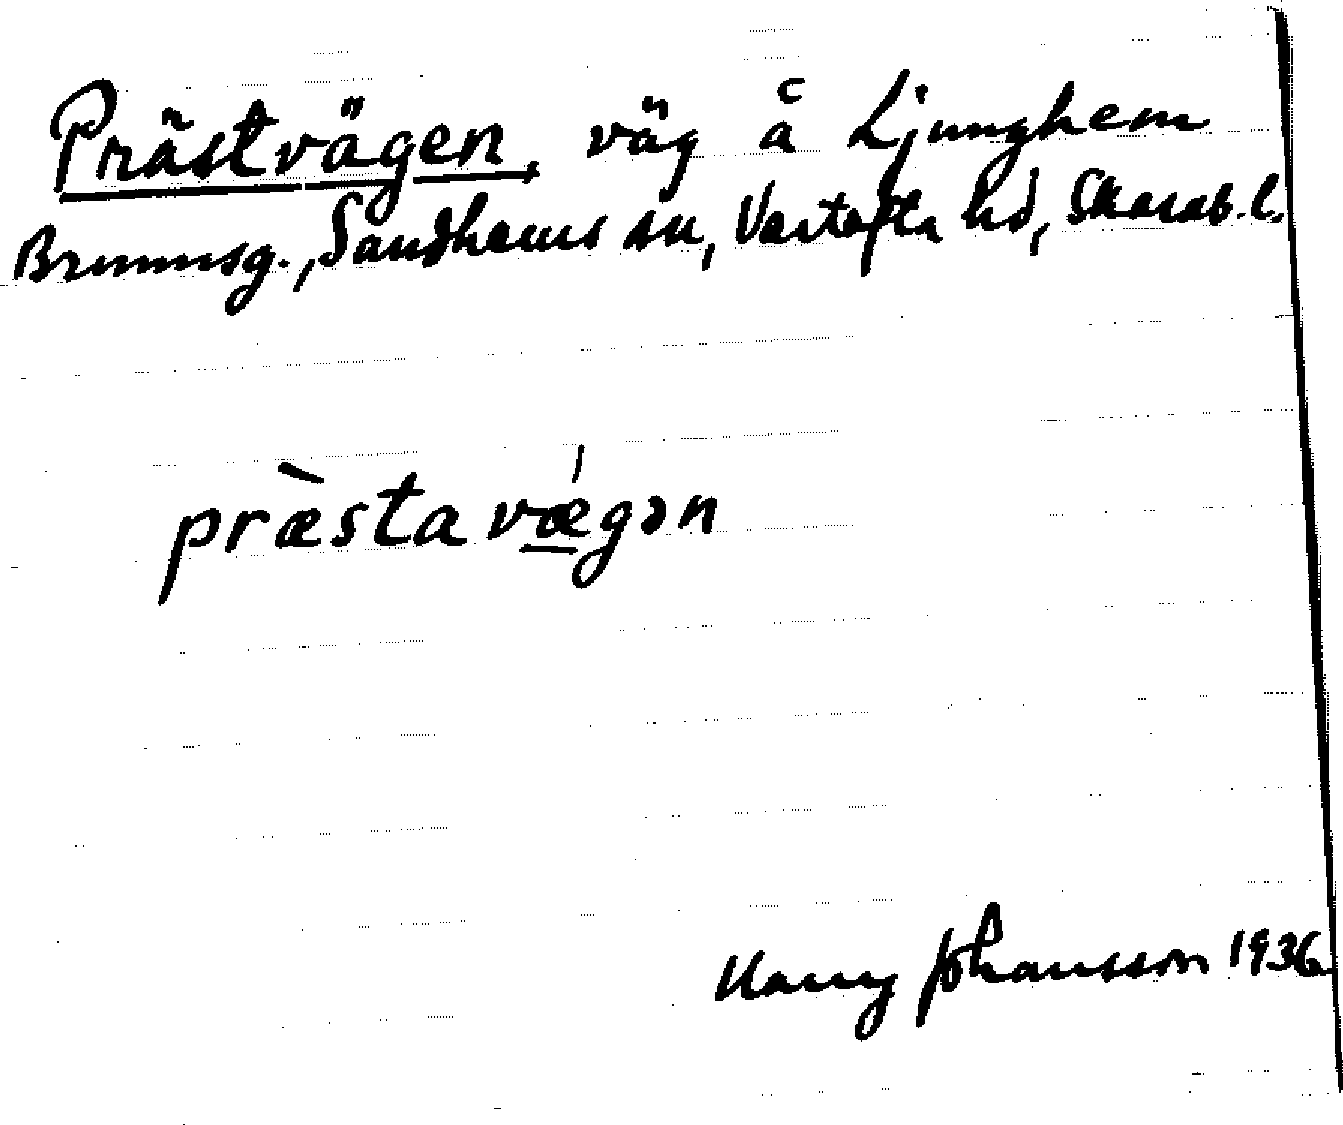 Prästvägen, väg å Ljunghem
Brunnsg., Sandhems sn, Vartofta hd, Skarab. l.
præ̀stavǽgən
Harry Johansson 1936